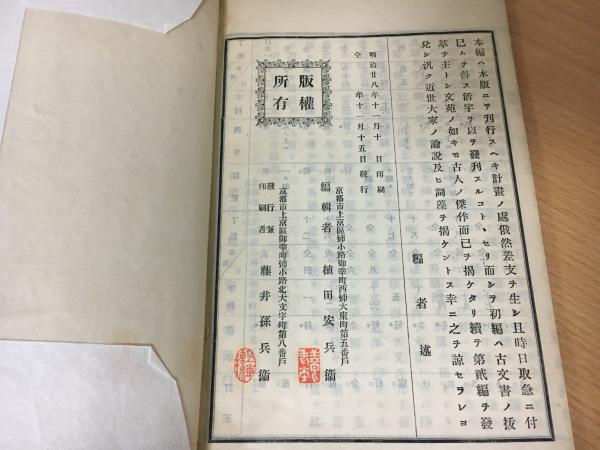 本編ハ木版ニテ刊行スヘキ計畫ノ處俄然差支ヲ生シ且時日取急ニ付
已ムヲ得ス活字ヲ以テ發刊スルコトヽセリ而シテ初編ハ古文書ノ抜
萃ヲ主トシ文苑ノ如キモ古人ノ傑作而已ヲ揭ケタリ續テ第貳編ヲ發
兌シ汎ク近世大家ノ論説及ヒ詞藻ヲ揭ケントス幸ニ之ヲ諒セラレヨ
編者述
明治廿八年十一月十日印刷
仝年十一月十五日發行
版權
所有
京都市上京區姉小路御幸町西姉大東町第五番戸
編輯者 植田安兵衞
京都市上京區御幸町姉小路北大文字町第八番戸
發行兼
印刷者 藤井孫兵衞